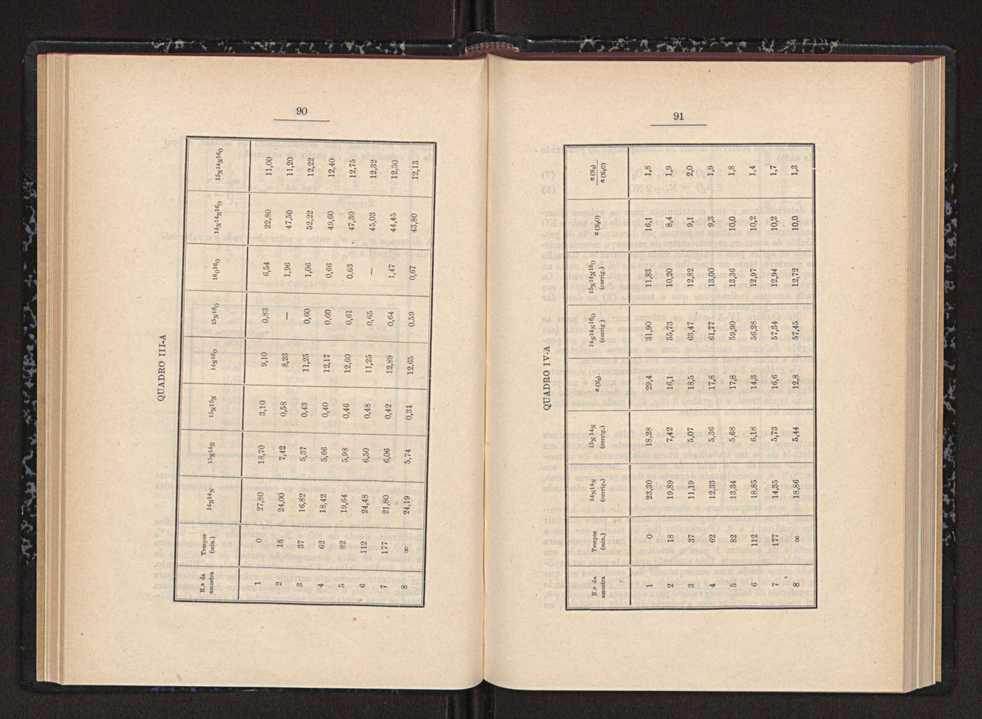 90
QUADRO III-A
N.º da amostra | Tempos (min.) | ¹⁴N¹⁴N | ¹⁵N¹⁴N | ¹⁵N¹⁵N | ¹⁴N¹⁶O | ¹⁵N¹⁶O | ¹⁶O¹⁶O | ¹⁴N¹⁴N¹⁶O | ¹⁵N¹⁴N¹⁶O
1 | 0 | 27,80 | 18,70 | 3,10 | 9,10 | 0,83 | 6,54 | 22,80 | 11,00
2 | 18 | 24,00 | 7,42 | 0,58 | 8,23 | — | 1,96 | 47,50 | 11,20
3 | 37 | 16,82 | 5,37 | 0,43 | 11,25 | 0,60 | 1,06 | 52,22 | 12,22
4 | 62 | 18,42 | 5,66 | 0,40 | 12,17 | 0,60 | 0,66 | 49,60 | 12,40
5 | 82 | 19,64 | 5,98 | 0,46 | 12,60 | 0,61 | 0,63 | 47,30 | 12,75
6 | 112 | 24,48 | 6,50 | 0,48 | 11,25 | 0,65 | — | 45,03 | 12,32
7 | 177 | 21,80 | 6,06 | 0,42 | 12,89 | 0,64 | 1,47 | 44,45 | 12,30
8 | ∞ | 24,19 | 5,74 | 0,34 | 12,65 | 0,59 | 0,67 | 43,80 | 12,13
91
QUADRO IV-A
N.º da amostra | Tempos (min.) | ¹⁴N¹⁴N (corrig.) | ¹⁵N¹⁴N (corrig.) | ᵃ(N₂) | ¹⁴N¹⁴N¹⁶O (corrig.) | ¹⁵N¹⁴N¹⁶O (corrig.) | ᵃ(N₂O) | ᵃ(N₂) / ᵃ(N₂O)
1 | 0 | 23,30 | 18,28 | 29,4 | 31,90 | 11,83 | 16,1 | 1,8
2 | 18 | 19,89 | 7,42 | 16,1 | 55,73 | 10,20 | 8,4 | 1,9
3 | 37 | 11,19 | 5,07 | 18,5 | 63,47 | 12,82 | 9,1 | 2,0
4 | 62 | 12,33 | 5,36 | 17,8 | 61,77 | 13,00 | 9,3 | 1,9
5 | 82 | 13,34 | 5,68 | 17,8 | 59,90 | 13,36 | 10,0 | 1,8
6 | 112 | 18,85 | 6,18 | 14,3 | 56,28 | 12,97 | 10,2 | 1,4
7 | 177 | 14,35 | 5,73 | 16,6 | 57,34 | 12,94 | 10,2 | 1,7
8 | ∞ | 18,86 | 5,44 | 12,8 | 57,45 | 12,72 | 10,0 | 1,3